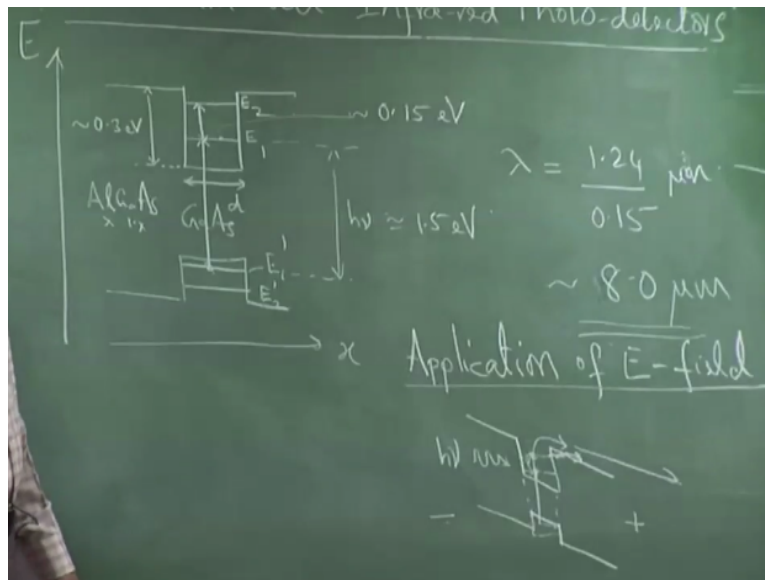 Infra-red Photo-detectors
E
~0.3eV
E₂
~ 0.15 eV
E₁
AlₓGa₁₋ₓAs
GaAs
d
hν ≃ 1.5eV
E₁'
E₂'
x
λ = 1.24 / 0.15 μm
~ 8.0 μm
Application of E-field
hν
− +